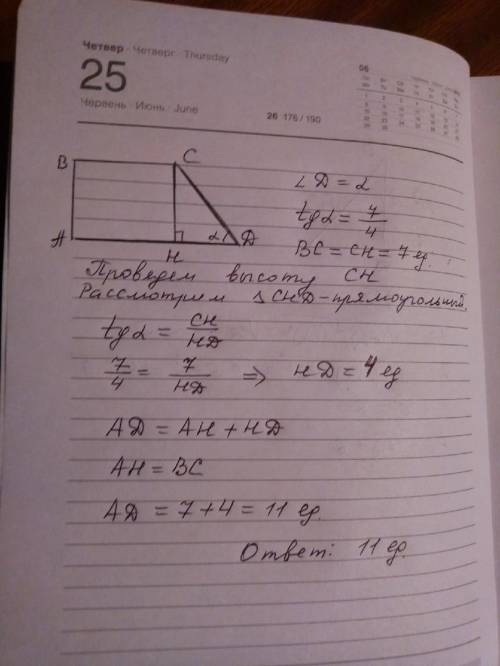 Четвер · Четверг · Thursday
25
Червень · Июнь · June
26 176 / 190
06
B C
A H α D
∠D = α
tgα = 7/4
BC = CH = 7 ед.
Проведем высоту CH
Рассмотрим △CHD - прямоугольный.
tgα = CH/HD
7/4 = 7/HD ⇒ HD = 4 ед
AD = AH + HD
AH = BC
AD = 7 + 4 = 11 ед.
Ответ: 11 ед.